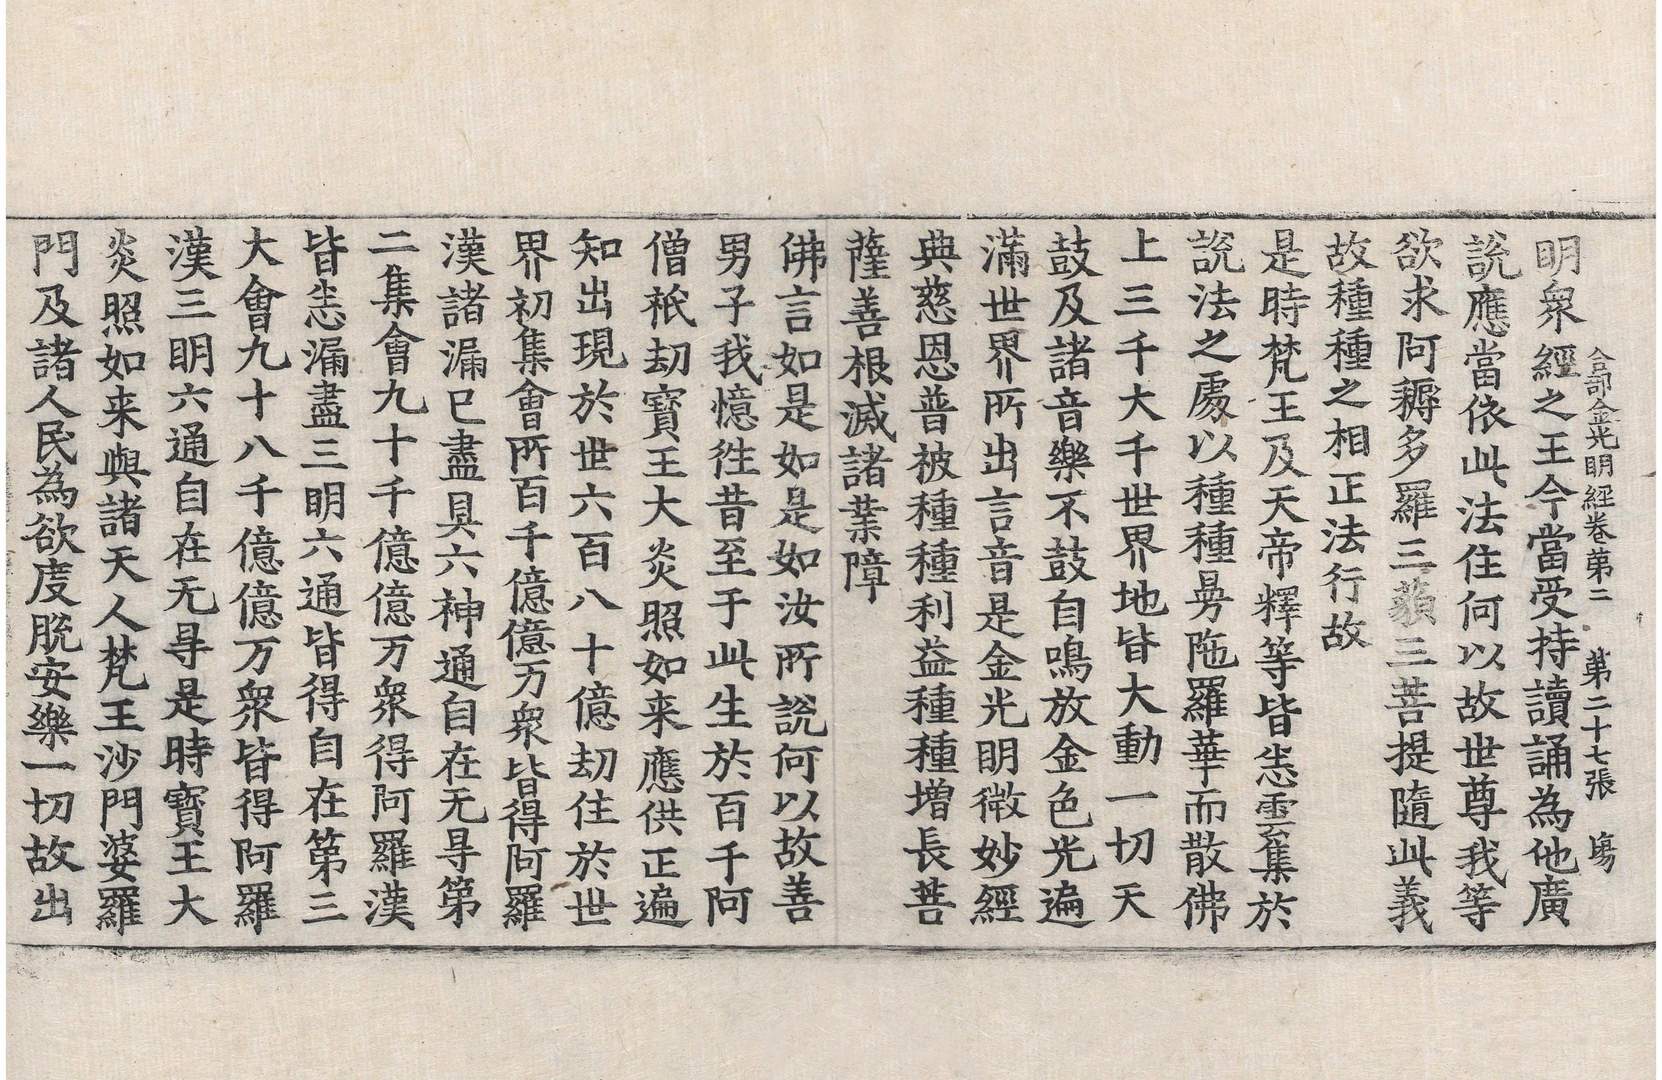 合部金光明經卷第二 第二十七張 塲
明衆經之王今當受持讀誦為他廣
說應當依此法住何以故世尊我等
欲求阿耨多羅三藐三菩提隨此義
故種種之相正法行故
是時梵王及天帝釋等皆悉雲集於
說法之處以種種曼陁羅華而散佛
上三千大千世界地皆大動一切天
鼓及諸音樂不鼓自鳴放金色光遍
滿世界所出言音是金光明微妙經
典慈恩普被種種利益種種增長菩
薩善根滅諸業障
佛言如是如是如汝所說何以故善
男子我憶徃昔至于此生於百千阿
僧祇劫寳王大炎照如来應供正遍
知出現於世六百八十億劫住於世
界初集會所百千億億万衆皆得阿羅
漢諸漏已盡具六神通自在无㝵第
二集會九十千億億万衆得阿羅漢
皆悉漏盡三明六通皆得自在第三
大會九十八千億億万衆皆得阿羅
漢三明六通自在无㝵是時寳王大
炎照如来與諸天人梵王沙門婆羅
門及諸人民為欲度脫安樂一切故出